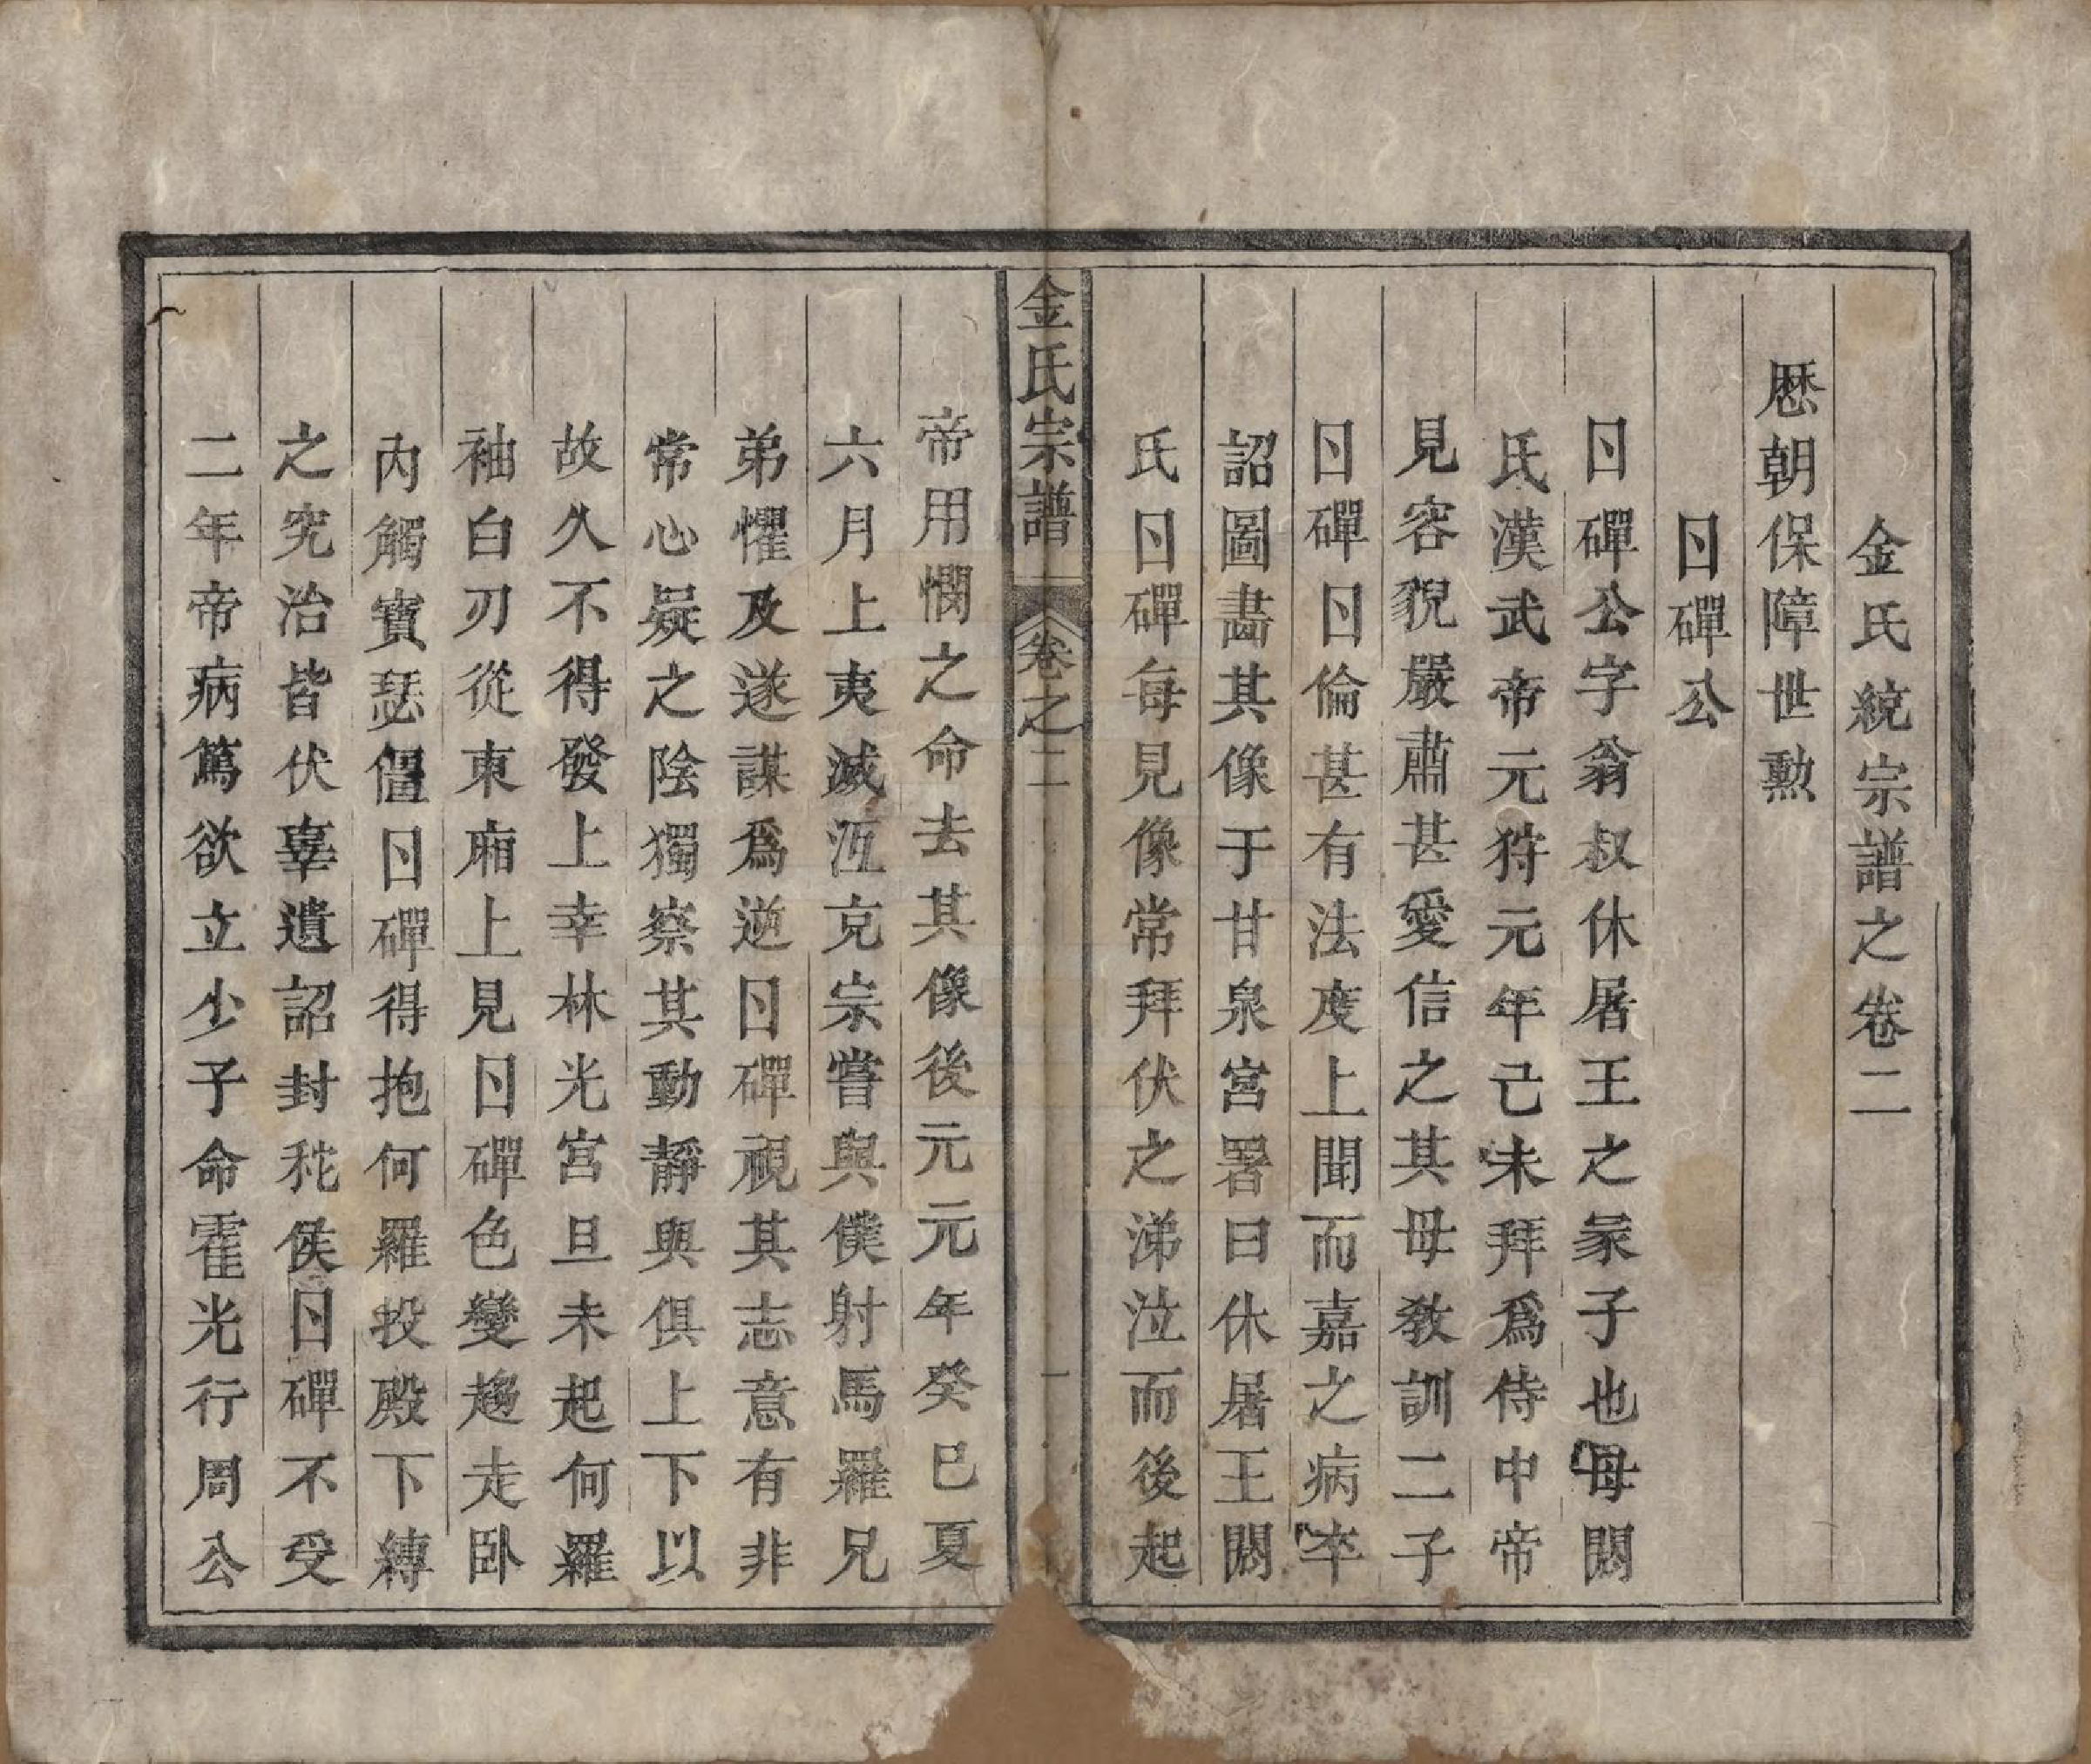 金氏統宗譜之卷二
歷朝保障世勲
日磾公
日磾公字翁叔休屠王之冢子也母閼
氏漢武帝元狩元年己未拜爲侍中帝
見容貌嚴肅甚愛信之其母敎訓二子
日磾日倫甚有法度上聞而嘉之病卒
詔圖畵其像于甘泉宮署曰休屠王閼
氏日磾每見像常拜伏之涕泣而後起
金氏宗譜
卷之二
一
帝用憫之命去其像後元元年癸巳夏
六月上夷滅江充宗嘗與僕射馬羅兄
弟懼及遂謀爲逆日磾視其志意有非
常心疑之陰獨察其動靜與俱上下以
故久不得發上幸林光宮旦未起何羅
袖白刃從東廂上見日磾色變趨走卧
內觸寳瑟僵日磾得抱何羅投殿下縳
之究治皆伏辜遺詔封秺侯日磾不受
二年帝病篤欲立少子命霍光行周公